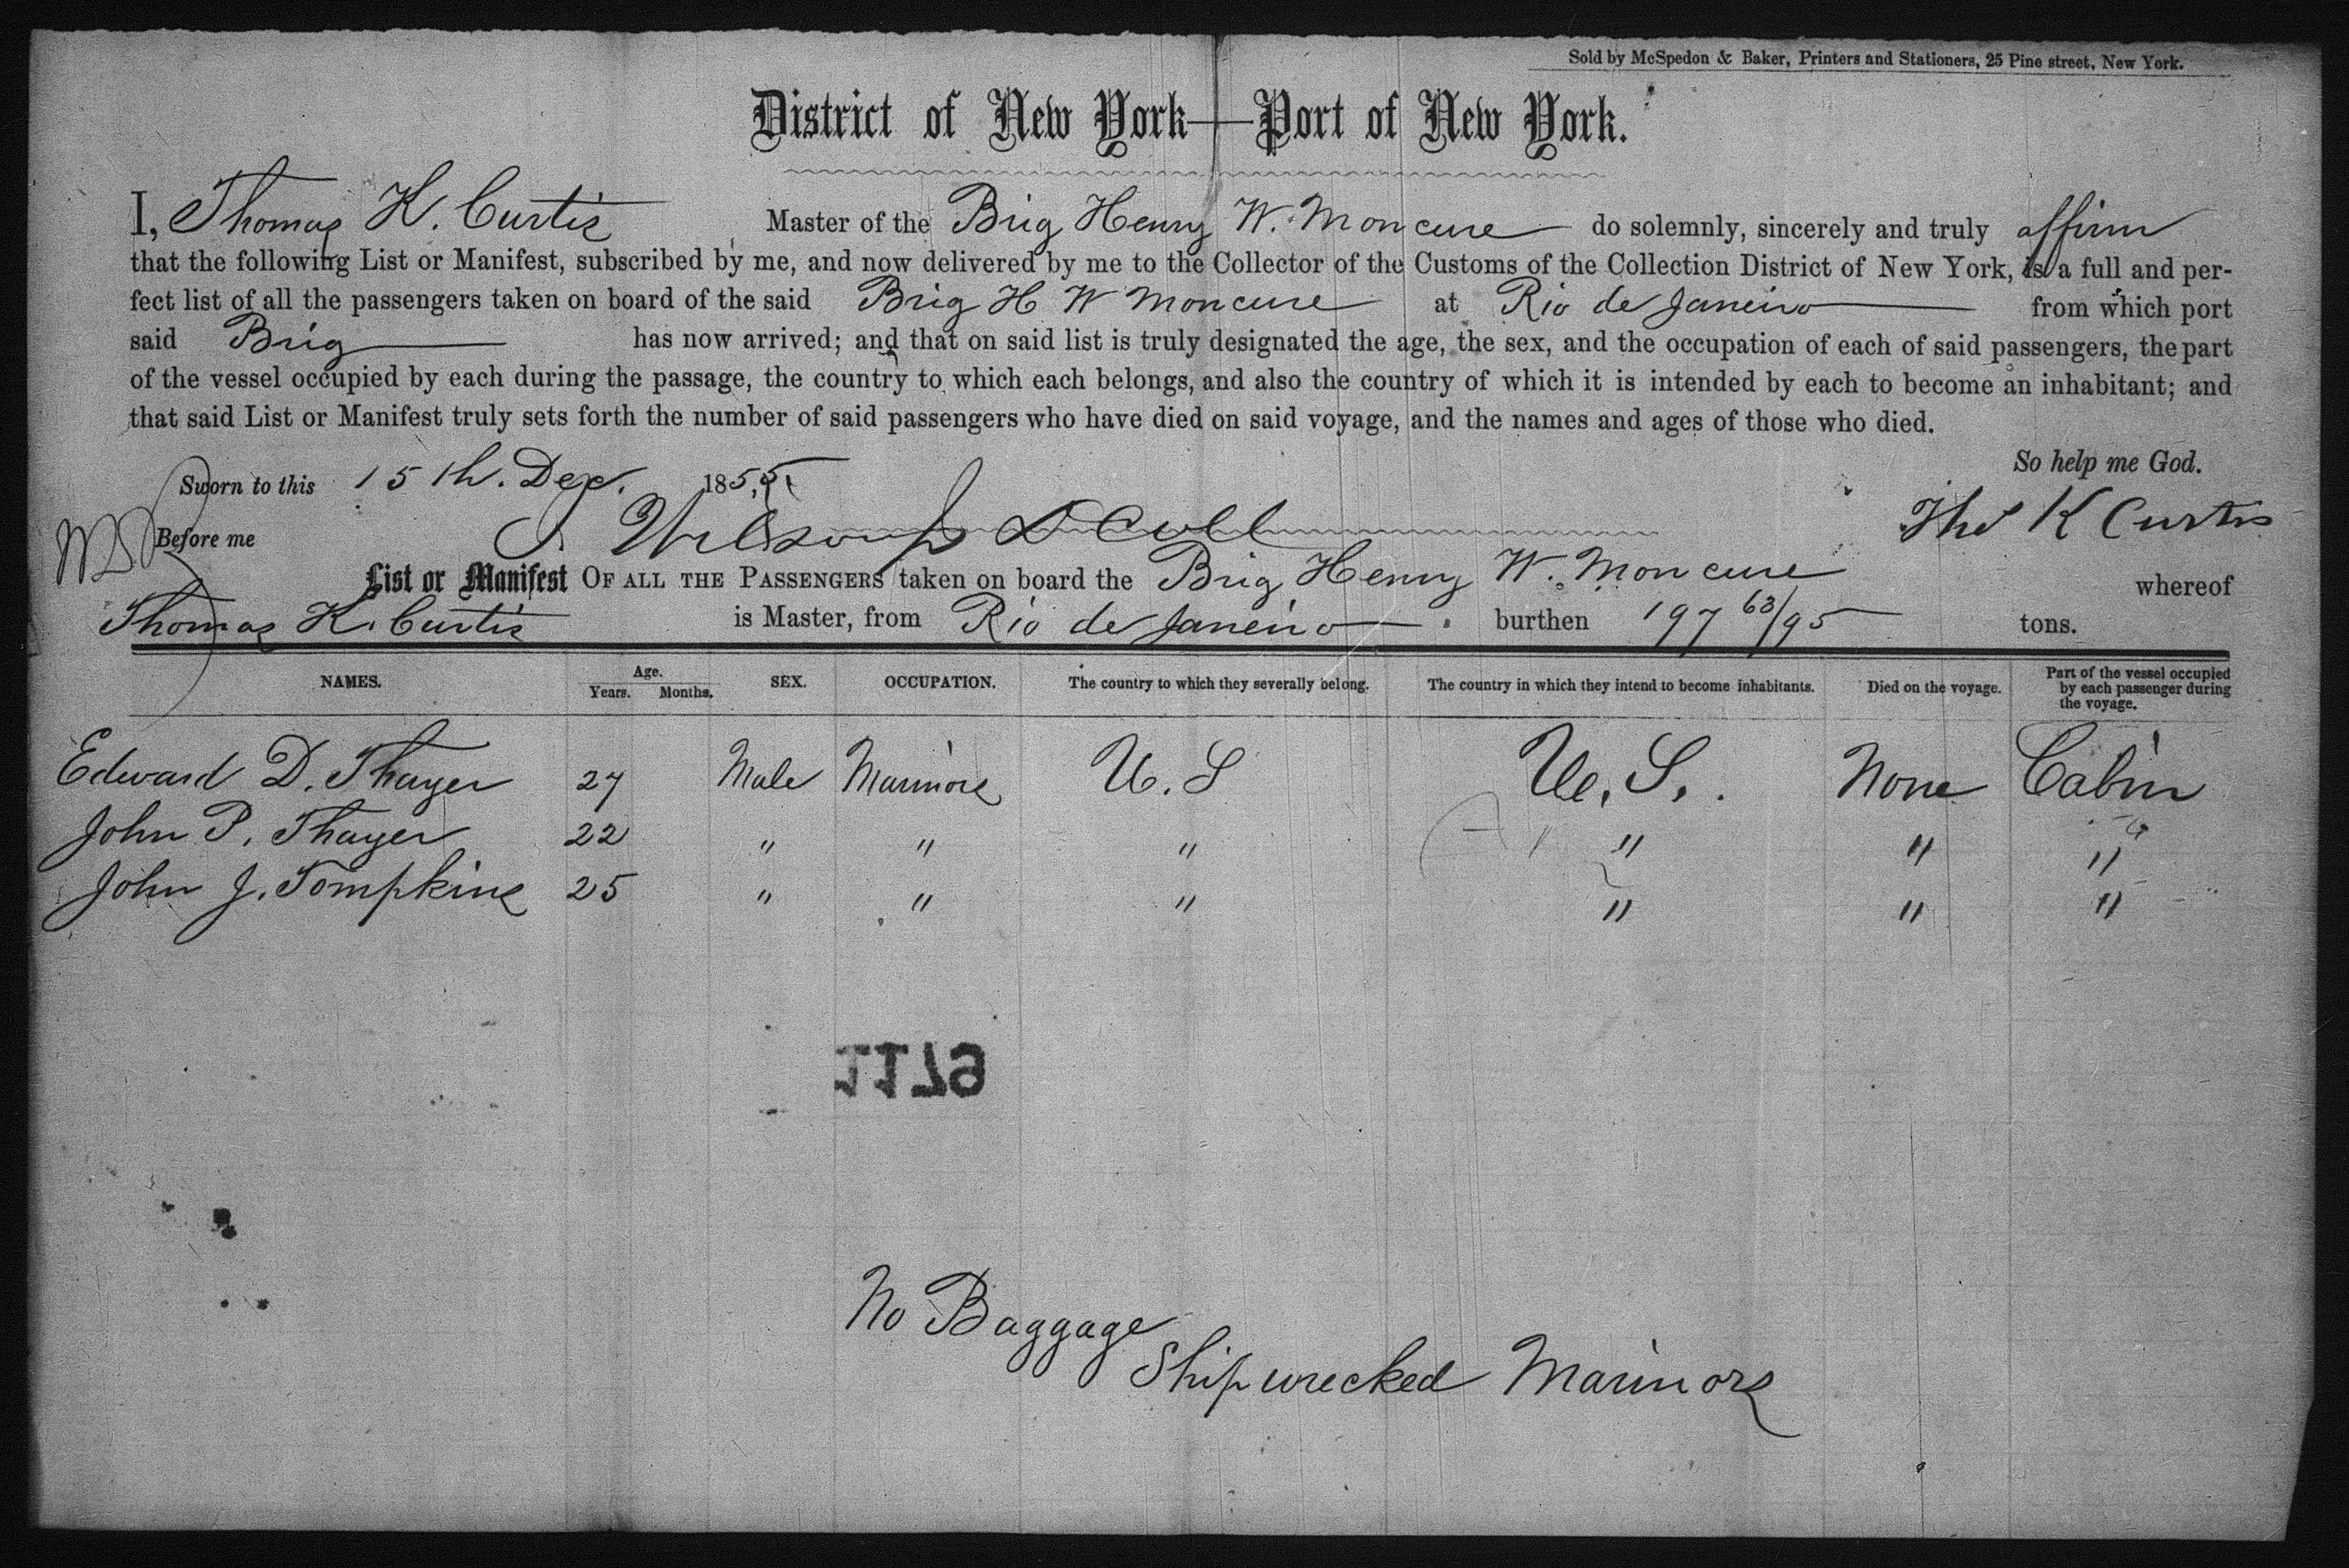 Sold by McSpedon & Baker, Printers and Stationers, 25 Pine street, New York.
District of New York—Port of New York.
I, Thomas K. Curtis Master of the Brig Henry W. Moncure do solemnly, sincerely and truly affirm
that the following List or Manifest, subscribed by me, and now delivered by me to the Collector of the Customs of the Collection District of New York, is a full and per-
fect list of all the passengers taken on board of the said Brig H W Moncure at Rio de Janeiro from which port
said Brig has now arrived; and that on said list is truly designated the age, the sex, and the occupation of each of said passengers, the part
of the vessel occupied by each during the passage, the country to which each belongs, and also the country of which it is intended by each to become an inhabitant; and
that said List or Manifest truly sets forth the number of said passengers who have died on said voyage, and the names and ages of those who died.
So help me God.
Sworn to this 15th. Dec. 1855.
Before me Wilson D Coll Thos K Curtis
List or Manifest OF ALL THE PASSENGERS taken on board the Brig Henry W. Moncure whereof
Thomas K. Curtis is Master, from Rio de Janeiro burthen 197 63/95 tons.
NAMES. Age. Years. Months. SEX. OCCUPATION. The country to which they severally belong. The country in which they intend to become inhabitants. Died on the voyage. Part of the vessel occupied by each passenger during the voyage.
Edward D. Thayer 27 Male Marinors U. S U. S. None Cabin
John P. Thayer 22 " " " " " "
John J. Tompkins 25 " " " " " "
1179
No Baggage
Shipwrecked Marinors